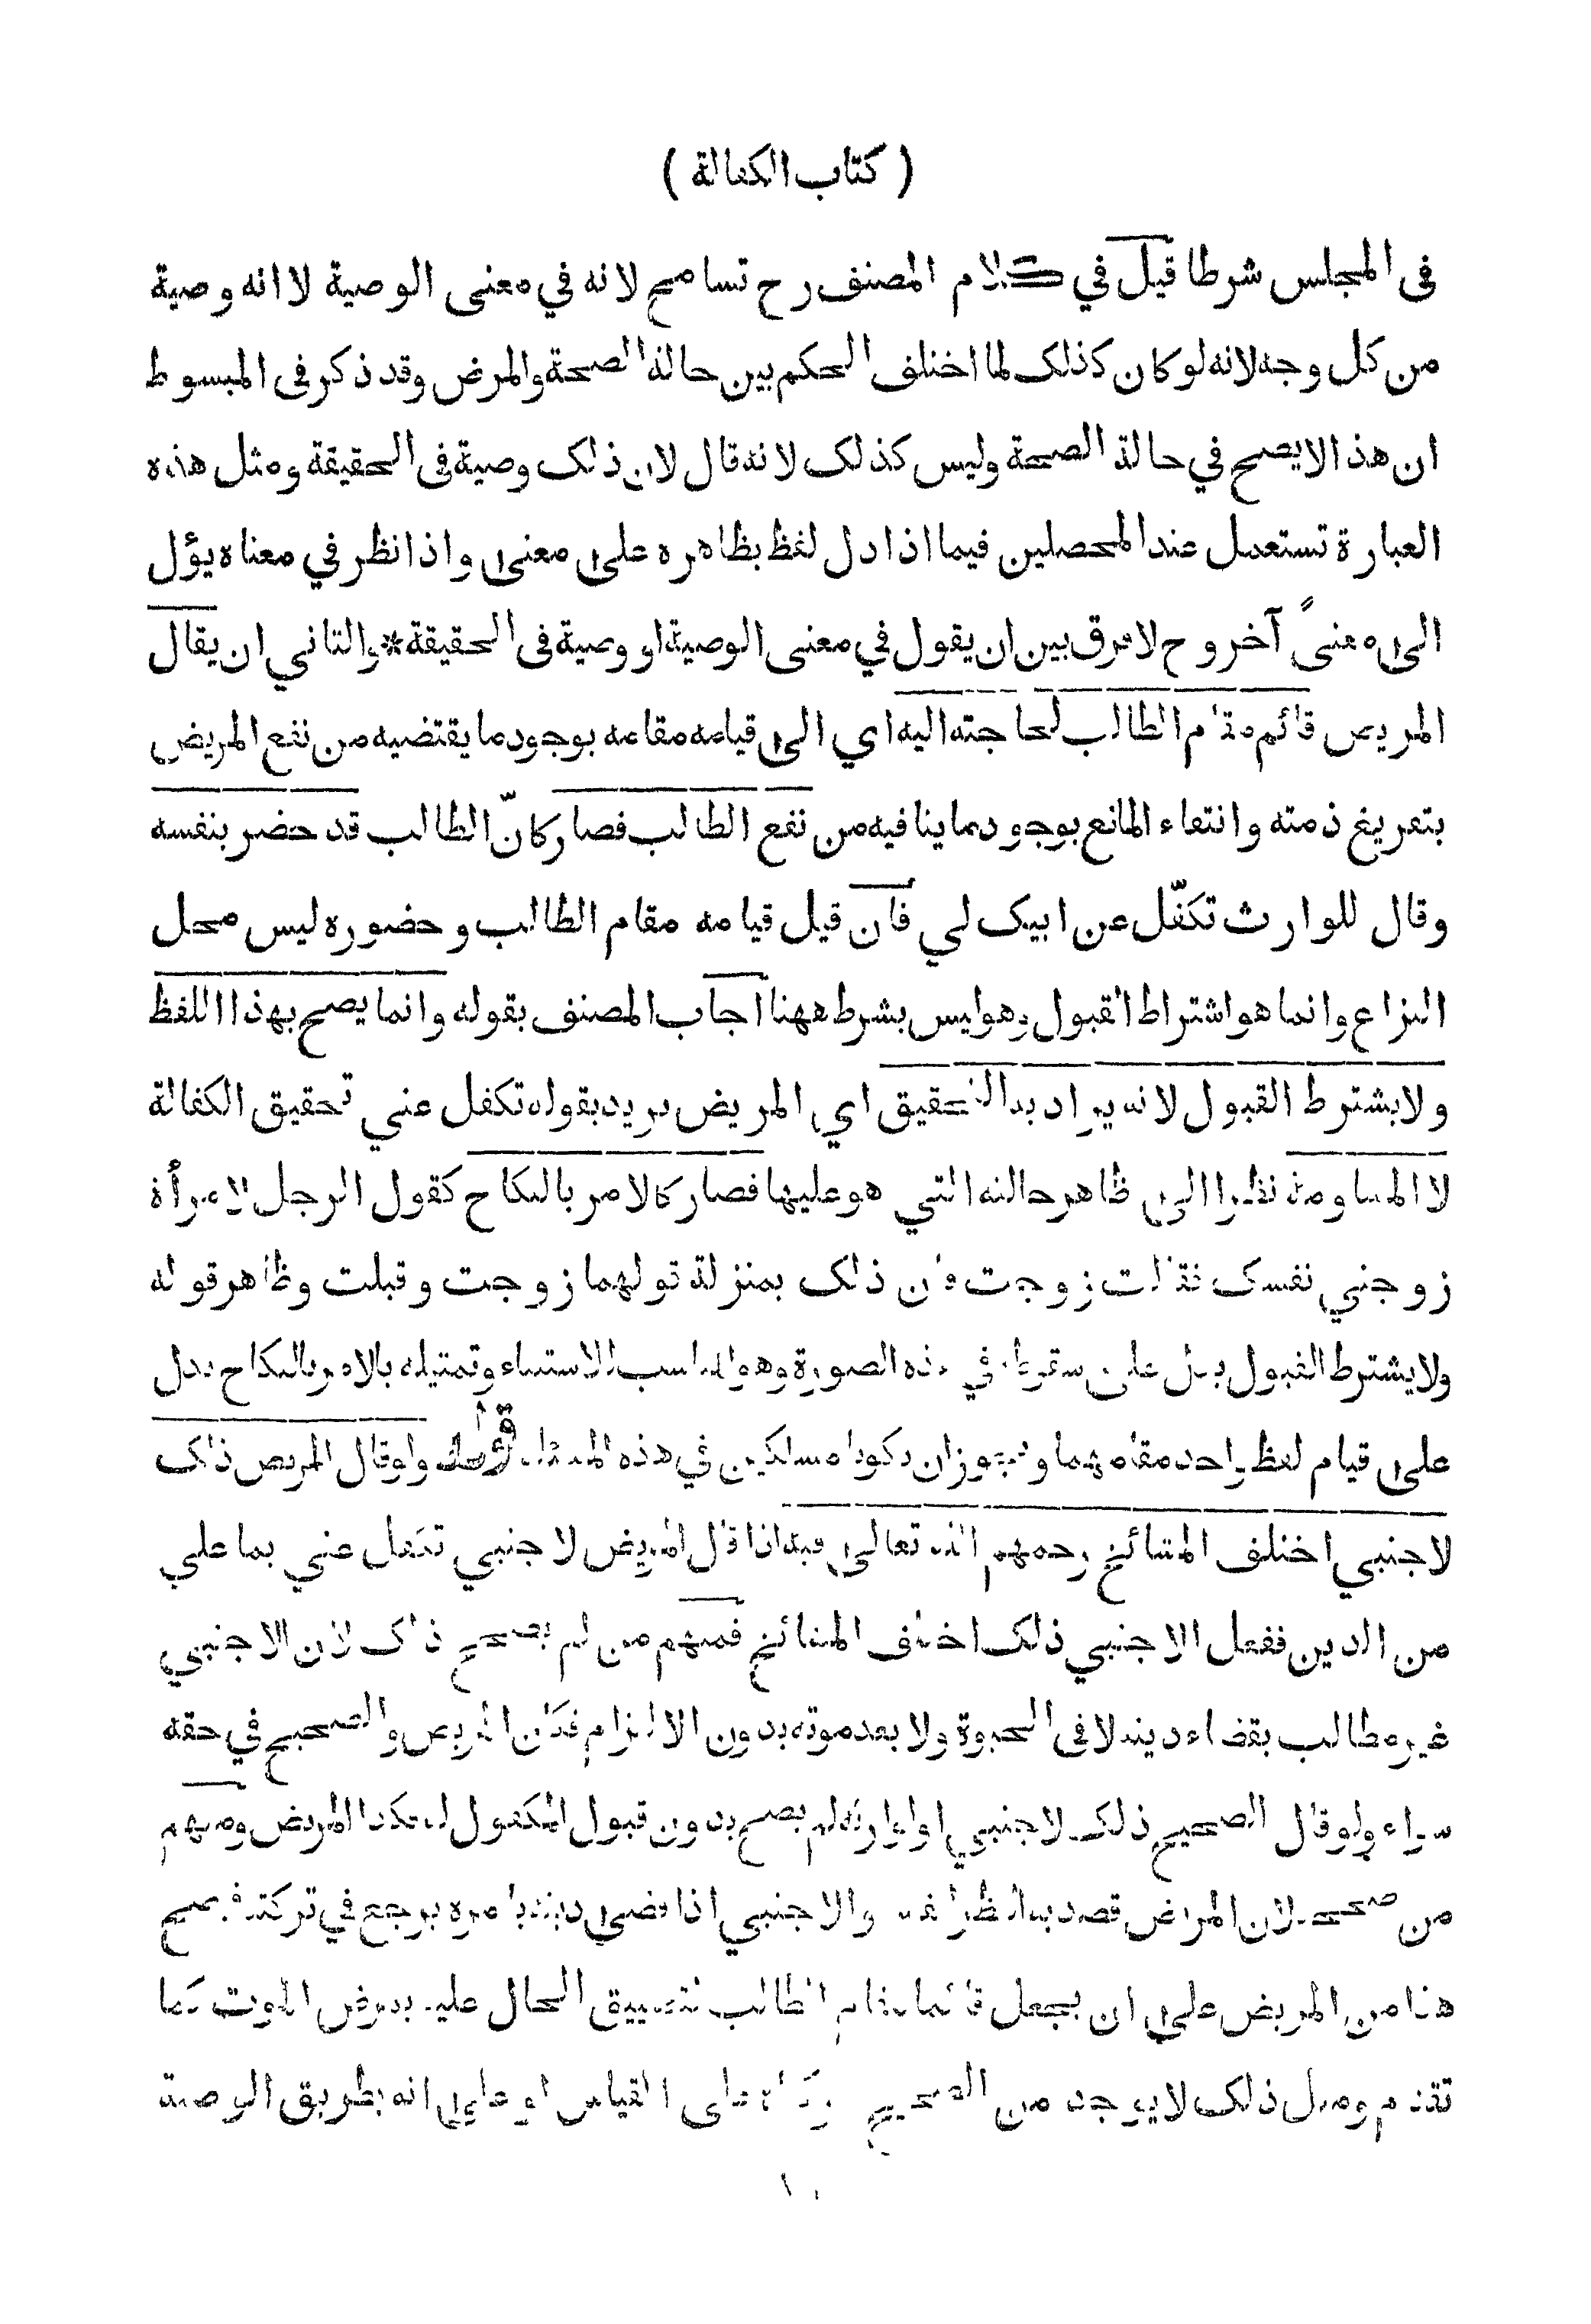 ( كتاب الكفالة )
في المجلس شرطا قيل في كلام المصنف رح تسامح لانه في معنى الوصية لا انه وصية
من كل وجه لانه لو كان كذلك لما اختلف الحكم بين حالة الصحة والمرض وقد ذكر في المبسوط
ان هذا لا يصح في حالة الصحة وليس كذلك لانه قال لان ذلك وصية في الحقيقة ومثل هذه
العبارة تستعمل عند المحصلين فيما اذا دل لفظ بظاهره على معنى واذا نظر في معناه يؤل
الى معنىً آخر وح لا فرق بين ان يقول في معنى الوصية او وصية في الحقيقة * والثاني ان يقال
المريض قائم مقام الطالب لحاجته اليه اي الى قيامه مقامه بوجود ما يقتضيه من نفع المريض
بتفريغ ذمته وانتفاء المانع بوجود ما ينافيه من نفع الطالب فصار كانّ الطالب قد حضر بنفسه
وقال للوارث تكفّل عن ابيك لي فان قيل قيامه مقام الطالب وحضوره ليس محل
النزاع وانما هو اشتراط القبول وهو ليس بشرط ههنا اجاب المصنف بقوله وانما يصح بهذا اللفظ
ولا يشترط القبول لانه يراد به التحقيق اي المريض يريد بقوله تكفل عني تحقيق الكفالة
لا المساومة نظرا الى ظاهر حالته التي هو عليها فصار كالامر بالنكاح كقول الرجل لامرأة
زوجني نفسك فقالت زوجت فان ذلك بمنزلة قولهما زوجت وقبلت وظاهر قوله
ولا يشترط القبول يدل على سقوطه في هذه الصورة وهو المناسب للاستثناء وتمثيله بالامر بالنكاح يدل
على قيام لفظ واحد مقامهما ويجوز ان يكونا مسلكين في هذه المسئلة ولو قال المريض ذلك
لاجنبي اختلف المشائخ رحمهم الله تعالى فيه اذا قال المريض لاجنبي تكفل عني بما علي
من الدين ففعل الاجنبي ذلك اختلف المشائخ فمنهم من لم يصحح ذلك لان الاجنبي
غير مطالب بقضاء دينه لا في الحيوة ولا بعد موته بدون الالتزام فكان المريض والصحيح في حقه
سواء ولو قال الصحيح ذلك لاجنبي او لوارثه لم يصح بدون قبول المكفول له فكذا المريض ومنهم
من صححه لان المريض قصد به النظر لنفسه والاجنبي اذا قضى دينه بامره يرجع في تركته فيصح
هذا من المريض على ان يجعل قائما مقام الطالب لتضييق الحال عليه بمرض الموت كما
تقدم ومثل ذلك لا يوجد من الصحيح على القياس او على انه بطريق الوصية